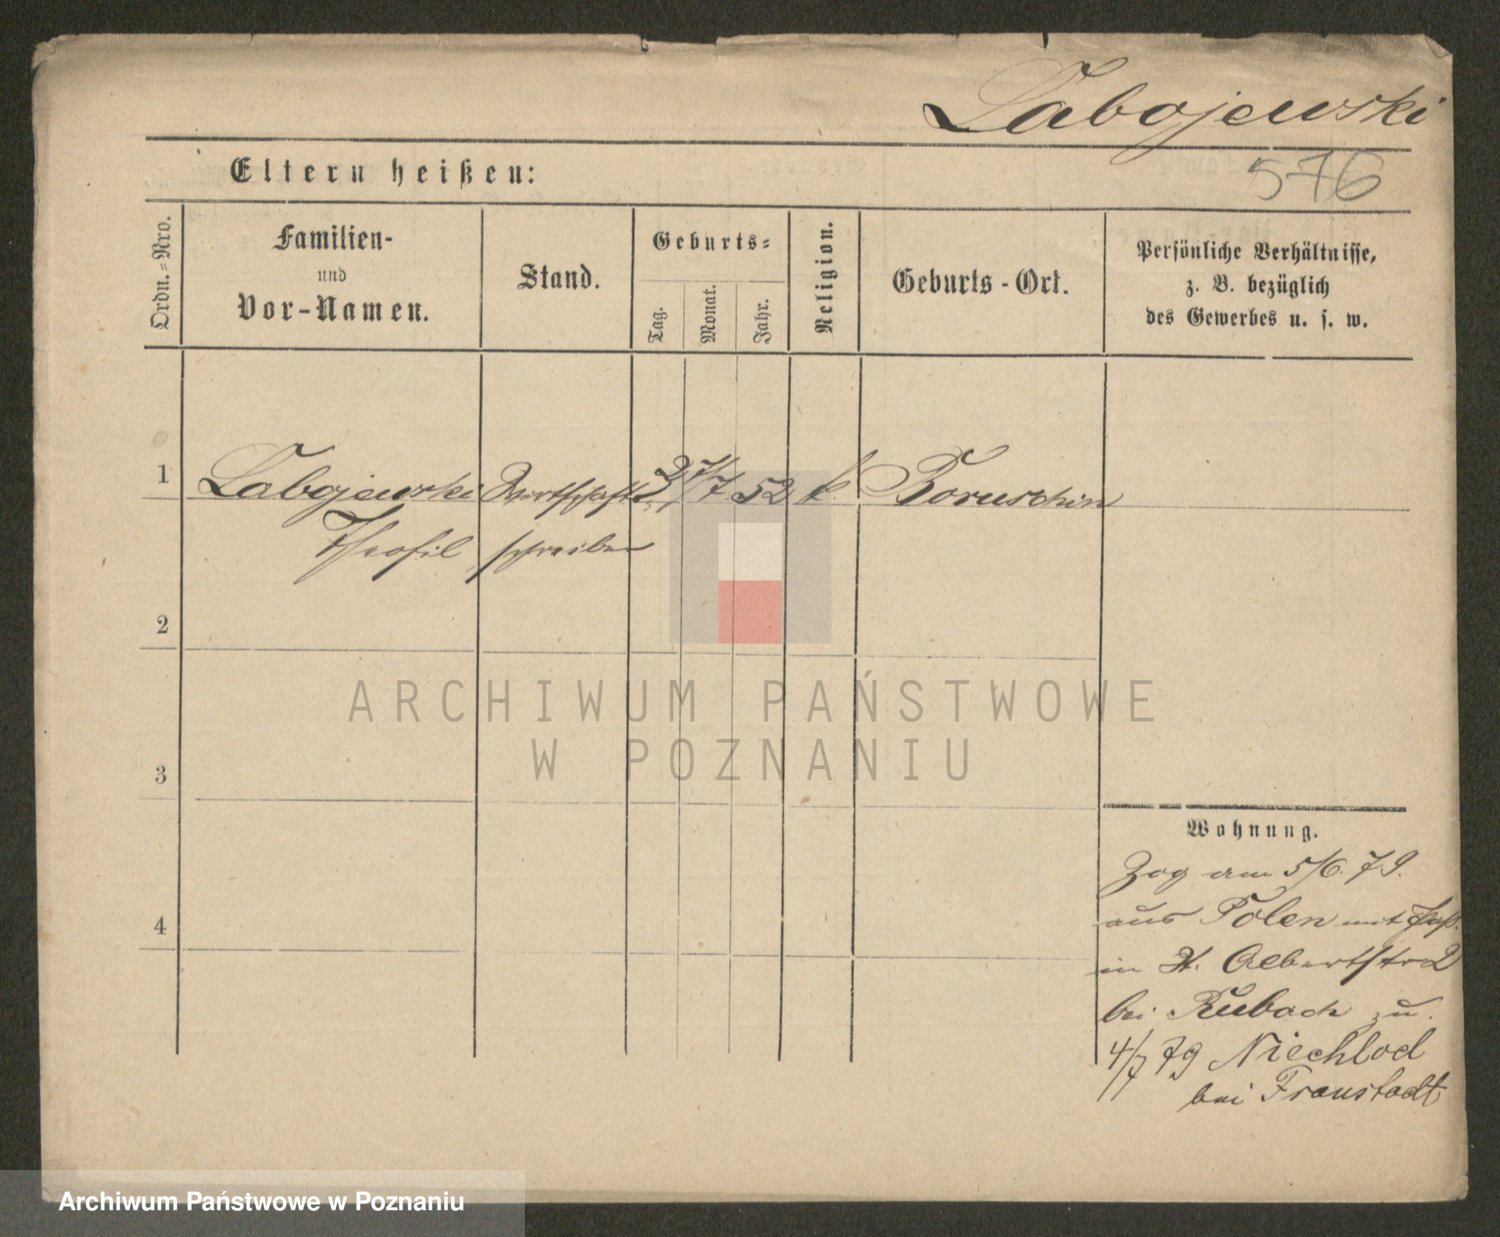 Labojewski
576
Eltern heißen:
Ordn.=Nro.
Familien-
und
Vor-Namen.
Stand.
Geburts=
Tag.
Monat.
Jahr.
Religion.
Geburts-Ort.
Persönliche Verhältnisse,
z. B. bezüglich
des Gewerbes u. s. w.
1
Labojewski Wirthschafts 27/7 52 k. Boruschin
Theofil schreiber
2
ARCHIWUM PAŃSTWOWE
W POZNANIU
3
Wohnung.
Zog am 5/6. 79.
aus Polen mit Paß.
in St. Albertstr 2
4
bei Rubach zu.
4/7 79 Niechlod
bei Fraustadt
Archiwum Państwowe w Poznaniu